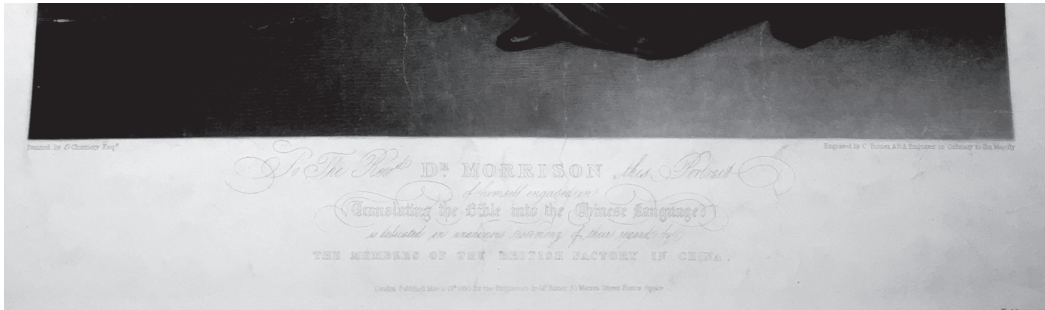 Painted by G. Chinnery Esqr. Engraved by C. Turner A.R.A. Engraver in Ordinary to His Majesty
To The Revd. DR. MORRISON this Portrait
of himself engaged in
Translating the Bible into the Chinese Language
is dedicated in testimony of their regard by
THE MEMBERS OF THE BRITISH FACTORY IN CHINA.
London Published for the by Warren Street Fitzroy Square